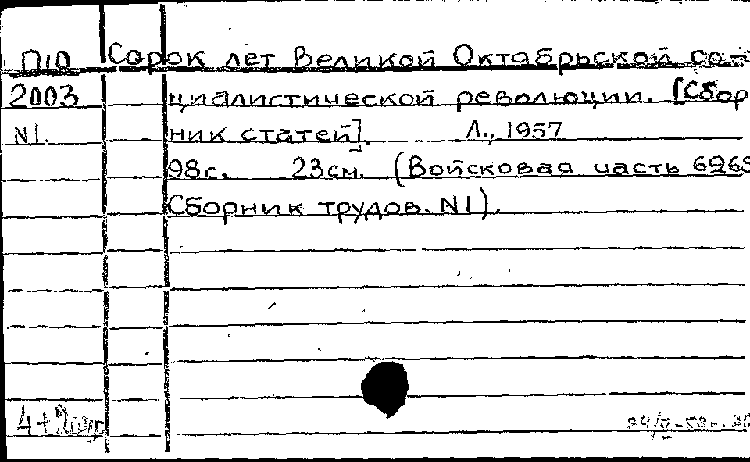 П10 Сорок лет Великой Октябрьской со-
2003 циалистической революции. [Сбор
N1. ник статей]. Л., 1957
98с. 23см. (Войсковая часть
Сборник трудов. N1).